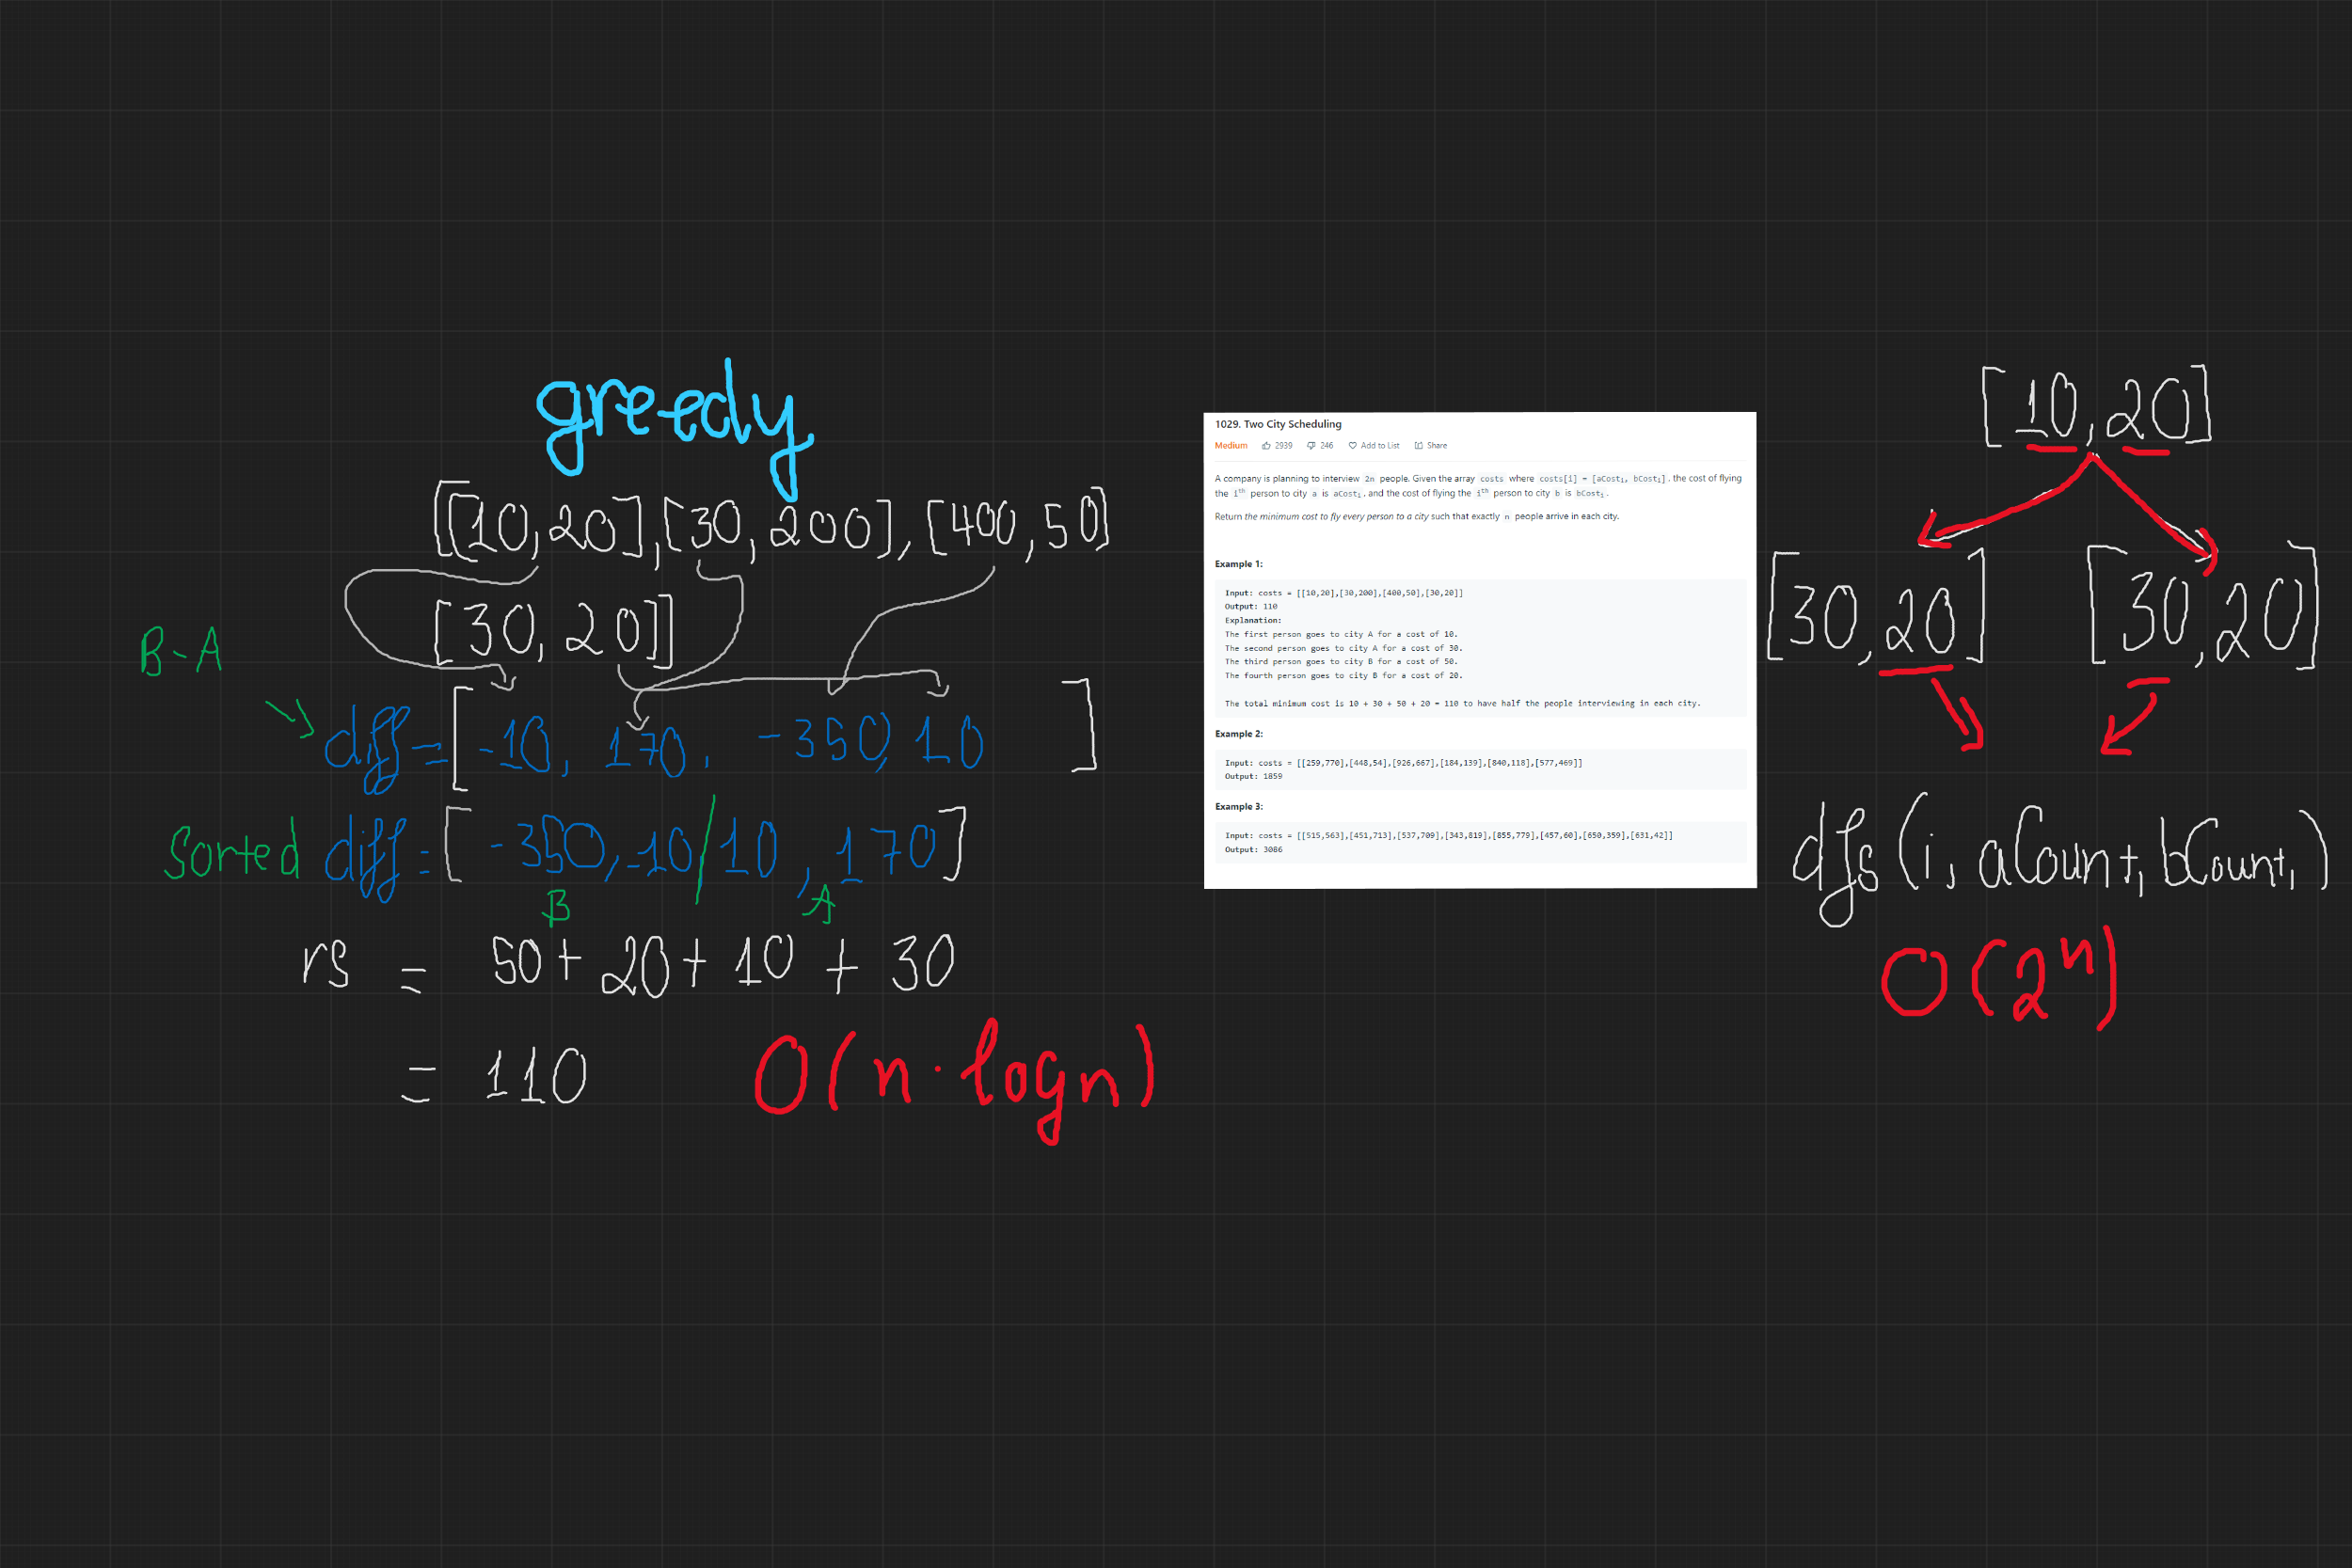 greedy
[[10,20],[30,200],[400,50]
[30,20]]
B-A
diff=[-10, 170, -350, 10 ]
Sorted diff=[-350,-10/10, 170]
B A
rs = 50+20+10+30
= 110
O(n·logn)
1029. Two City Scheduling
Medium 2939 246 Add to List Share
A company is planning to interview 2n people. Given the array costs where costs[i] = [aCosti, bCosti], the cost of flying
the ith person to city a is aCosti, and the cost of flying the ith person to city b is bCosti.
Return the minimum cost to fly every person to a city such that exactly n people arrive in each city.
Example 1:
Input: costs = [[10,20],[30,200],[400,50],[30,20]]
Output: 110
Explanation:
The first person goes to city A for a cost of 10.
The second person goes to city A for a cost of 30.
The third person goes to city B for a cost of 50.
The fourth person goes to city B for a cost of 20.
The total minimum cost is 10 + 30 + 50 + 20 = 110 to have half the people interviewing in each city.
Example 2:
Input: costs = [[259,770],[448,54],[926,667],[184,139],[840,118],[577,469]]
Output: 1859
Example 3:
Input: costs = [[515,563],[451,713],[537,709],[343,819],[855,779],[457,60],[650,359],[631,42]]
Output: 3086
[10,20]
[30,20] [30,20]
dfs(i, aCount, bCount,)
O(2^n)